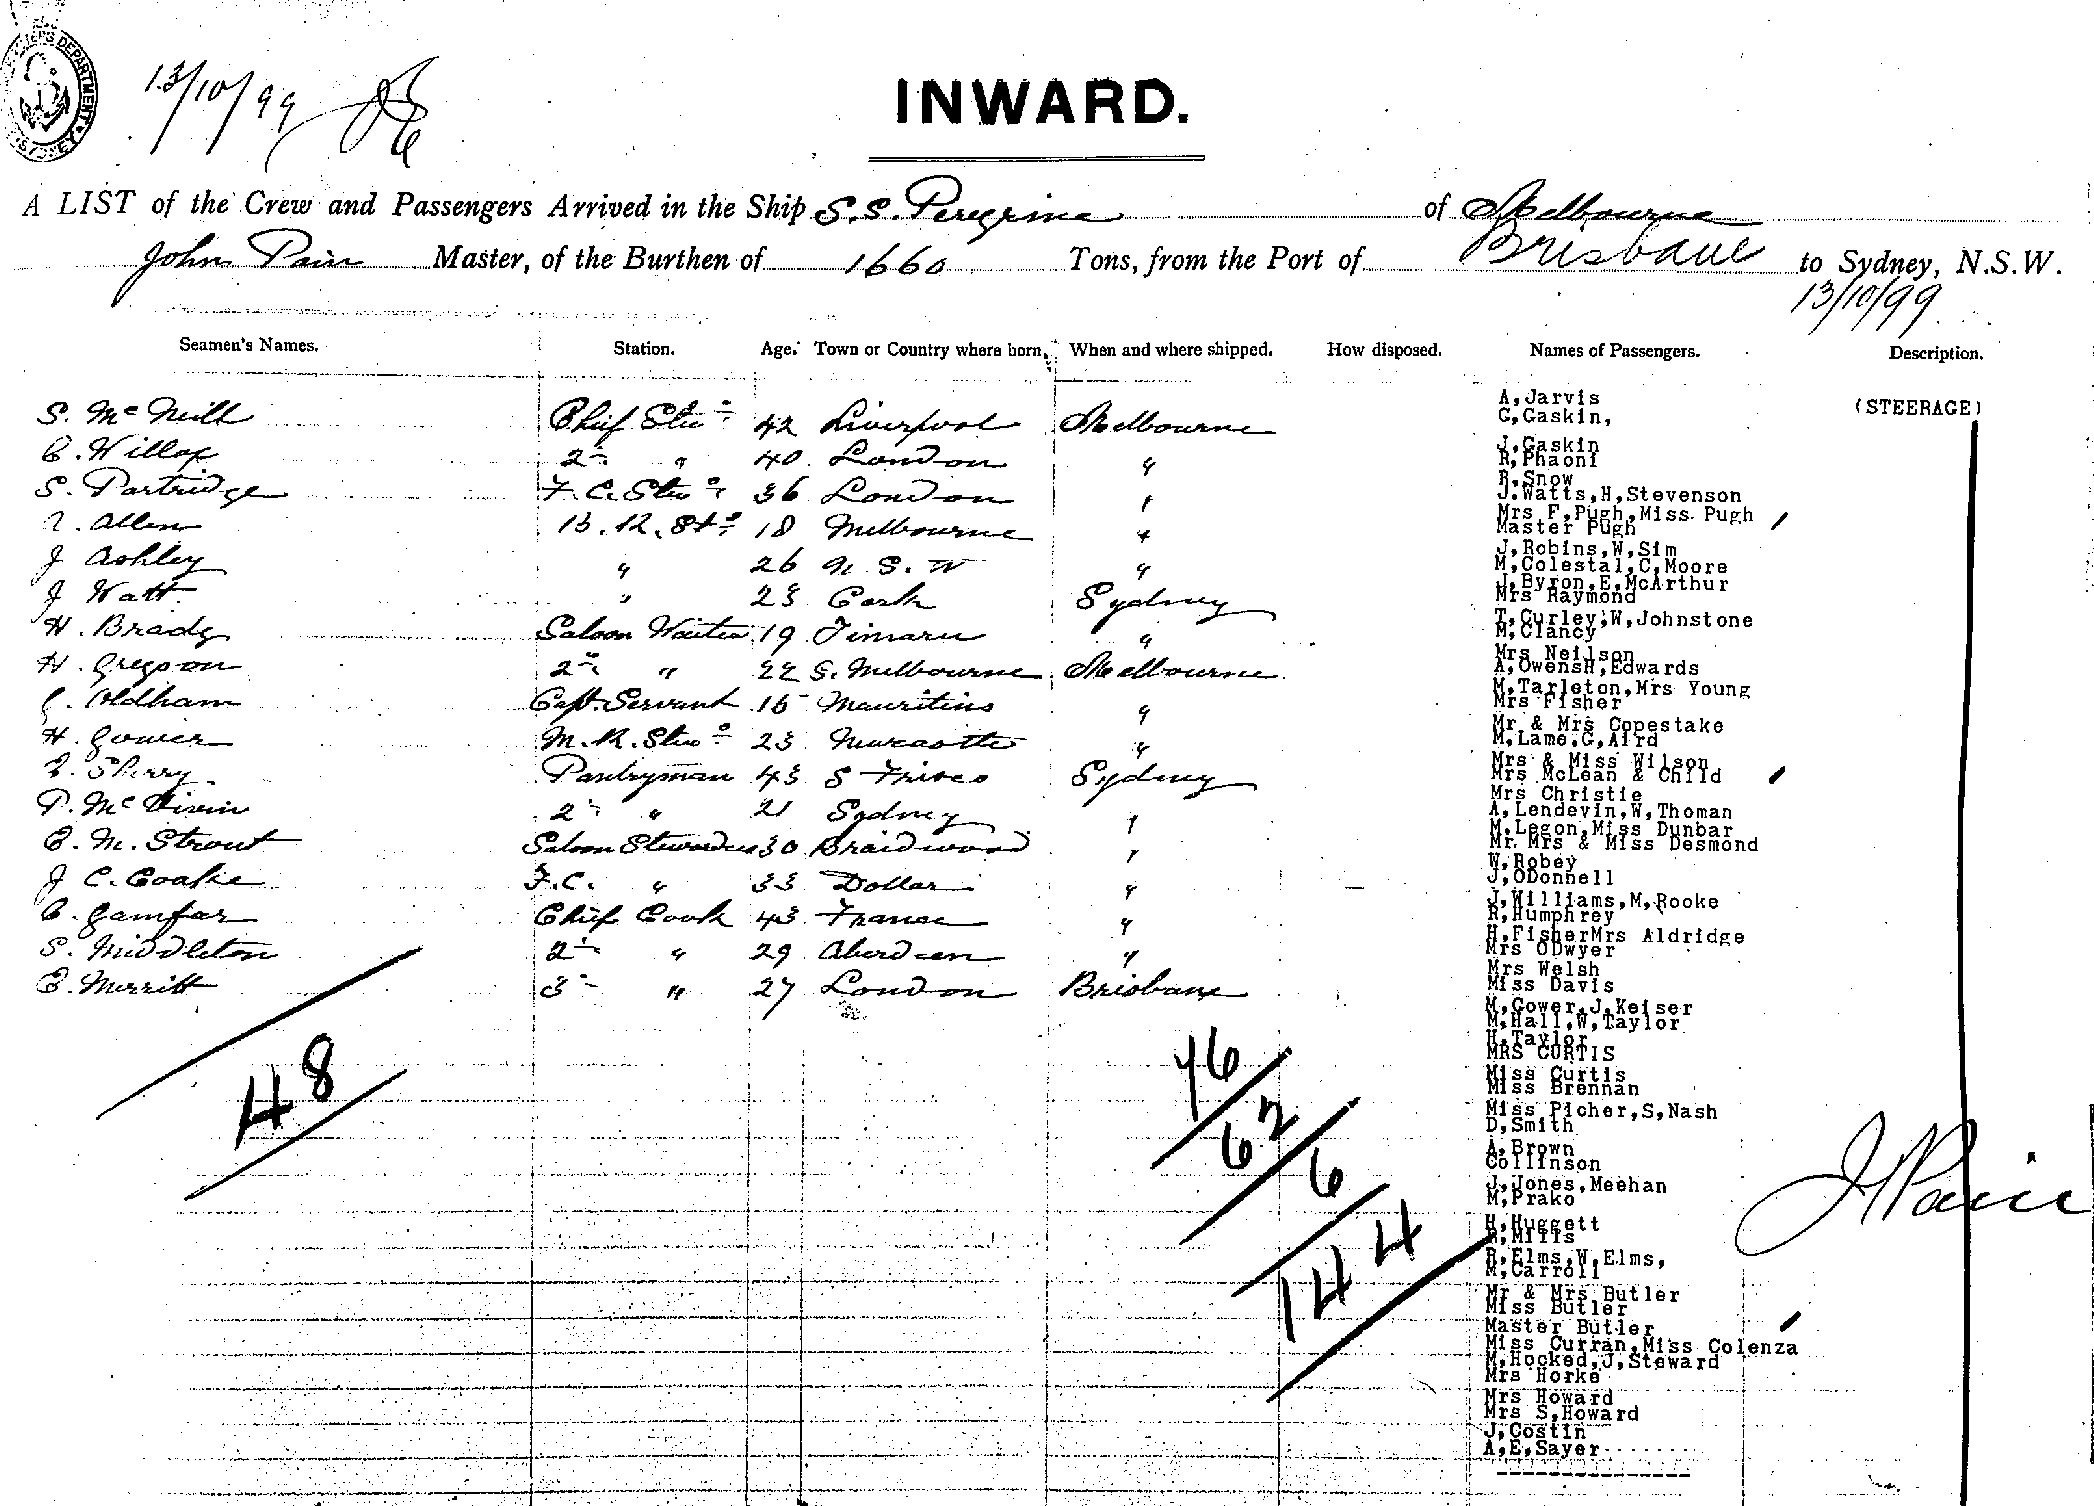 13/10/99
INWARD.
A LIST of the Crew and Passengers Arrived in the Ship S.S. Peregrine of Melbourne
John Pain Master, of the Burthen of 1660 Tons, from the Port of Brisbane to Sydney, N.S.W.
13/10/99
Seamen's Names. Station. Age. Town or Country where born. When and where shipped. How disposed. Names of Passengers. Description.
S. McNeill Chief Stewd 42 Liverpool Melbourne
C. Willox 2nd " 40 London "
S. Partridge F.C. Stewd 36 London "
Allen 18 Melbourne "
J Ashley " 26 N.S.W "
J Watt " 23 Cork Sydney
H. Brady Saloon Waiter 19 Timaru "
H. Gregson 2nd " 22 S. Melbourne Melbourne
Oldham Capt. Servant 15 Mauritius "
H. Gower M.R. Stewd 23 Newcastle "
Sherry Pantryman 43 S Frisco Sydney
P. McNivin 2nd " 21 Sydney "
E. M. Strout Saloon Stewardess 30 Braidwood "
J C. Coakie F.C. " 33 Dollar "
C. Gamfar Chief Cook 43 France "
S. Middleton 2nd " 29 Aberdeen "
E. Merritt 3rd " 27 London Brisbane
48
76
62
6
144
A,Jarvis (STEERAGE)
C,Gaskin,
J,Gaskin
R,Phaoni
R,Snow
J,Watts,H,Stevenson
Mrs F,Pugh,Miss Pugh
Master Pugh
J,Robins,W,Sim
M,Colestal,C,Moore
J,Byron,E,McArthur
Mrs Raymond
T,Curley,W,Johnstone
M,Clancy
Mrs Neilson
A,OwensH,Edwards
M,Tarleton,Mrs Young
Mrs Fisher
Mr & Mrs Copestake
M,Lame,G,Aird
Mrs & Miss Wilson
Mrs McLean & Child
Mrs Christie
A,Lendevin,W,Thoman
M,Legon,Miss Dunbar
Mr. Mrs & Miss Desmond
W,Robey
J,ODonnell
J,Williams,M,Rooke
R,Humphrey
H,FisherMrs Aldridge
Mrs ODwyer
Mrs Welsh
Miss Davis
M,Gower,J,Keiser
M,Hall,W,Taylor
H,Taylor
MRS CURTIS
Miss Curtis
Miss Brennan
Miss Picher,S,Nash
D,Smith
A,Brown
Collinson
J,Jones,Meehan
M,Prako
H,Huggett
R,Mills
R,Elms,W,Elms,
M,Carroll
Mr & Mrs Butler
Miss Butler
Master Butler
Miss Curran,Miss Colenza
M,Hocked,J,Steward
Mrs Horke
Mrs Howard
Mrs S,Howard
J,Costin
A,E,Sayer
J Pain